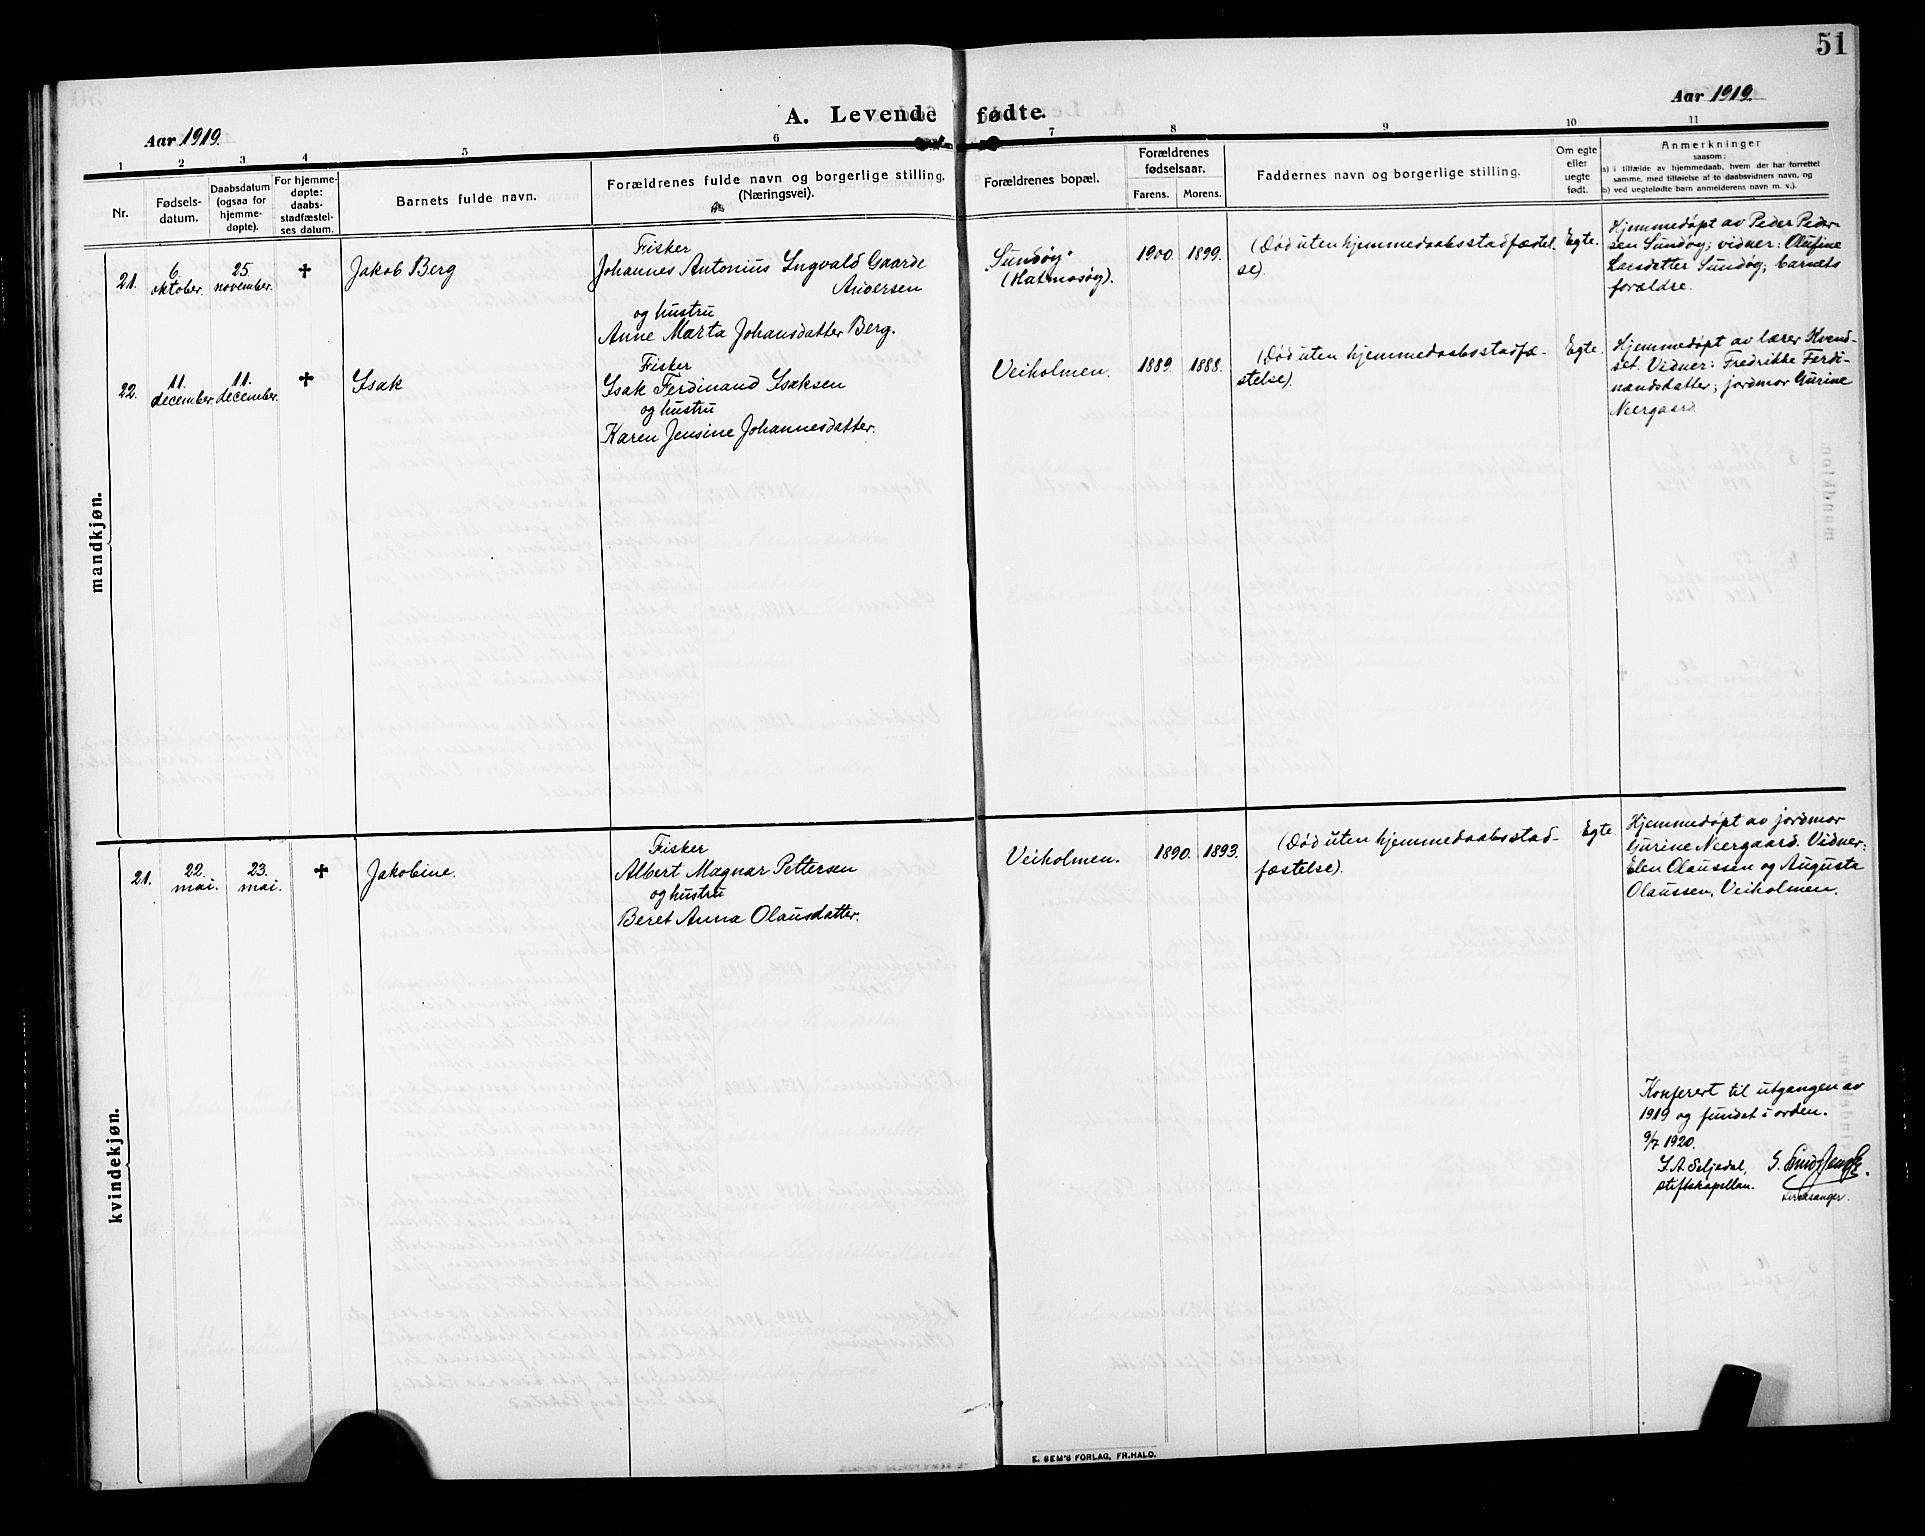 51
A. Levende fødte.
Aar 1919.
Aar 1919.
1 2 3 4 5 6 7 8 9 10 11
Nr.
Fødsels-
datum.
Daabsdatum
(ogsaa for
hjemme-
døpte).
For hjemme-
døpte:
daabs-
stadfæstel-
ses datum.
Barnets fulde navn.
Forældrenes fulde navn og borgerlige stilling.
(Næringsvei).
Forældrenes bopæl.
Forældrenes
fødselsaar.
Farens. Morens.
Faddernes navn og borgerlige stilling.
Om egte
eller
uegte
født.
Anmerkninger
saasom:
a) i tilfælde av hjemmedaab, hvem der har forrettet
samme, med tilføielse af to daabsvidners navn, og
b) ved uegtefødte barn anmelderens navn m. v.).
mandkjøn.
21.
6.
oktober.
25.
november.
✝
Jakob Berg
Fisker
Johannes Antonius Ingvald Gaarde
Andersen
og hustru
Anne Marta Johansdatter Berg.
Sundøy
(Hatmosøy).
1900. 1899.
(Død uten hjemmedaabsstadfæstel
se).
Egte.
Hjemmedøpt av Peder Peder-
sen Sundøy; vidner: Olufine
Larsdatter Sundøy; barnets
forældre.
22.
11.
december.
11.
december.
✝
Isak
Fisker
Isak Ferdinand Isaksen
og hustru
Karen Jensine Johannesdatter.
Veiholmen.
1889. 1888.
(Død uten hjemmedaabsstadfæ-
stelse).
Egte.
Hjemmedøpt av lærer Kvend-
set. Vidner: Fredrikke Ferdi-
nandsdatter; jordmor Gurine
Neergaard
kvindekjøn.
21.
22.
mai.
23.
mai.
✝
Jakobine.
Fisker
Albert Magnar Pettersen
og hustru
Beret Anna Olausdatter.
Veiholmen.
1890. 1893.
(Død uten hjemmedaabsstad-
fæstelse).
Egte.
Hjemmedøpt av jordmor
Gurine Neergaard. Vidner:
Elen Olaussen og Augusta
Olaussen, Veiholmen.
Konferert til utgangen av
1919 og fundet i orden.
9/7 1920.
S. A. Seljedal,
stiftskapellan.
kirkesanger.
E. SEM'S FORLAG, FR.HALD.